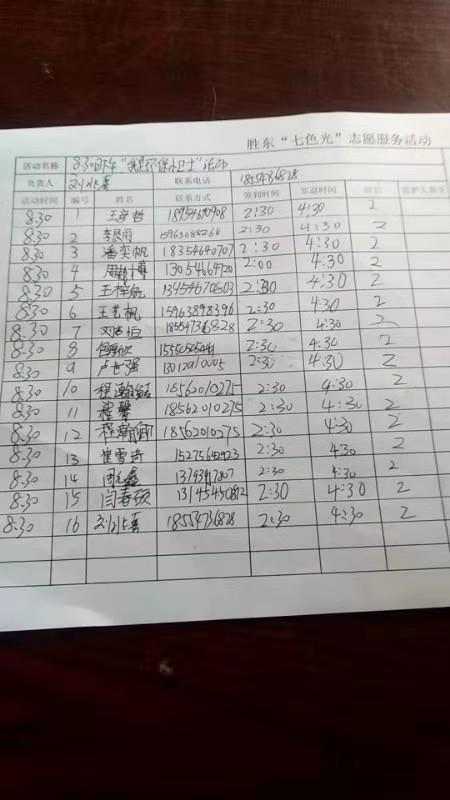 胜东“七色光”志愿服务活动
活动名称 8.30日下午“我是环保小卫士”活动
负责人 联系电话 18554736828
活动时间 编号 姓名 联系方式 签到时间 签退时间 时长 监护人签字
8.30 1 2:30 4:30 2
8.30 2 李晨雨 15963088268 2:30 4:30 2
8.30 3 潘奕帆 18354640707 2:30 4:30 2
8.30 4 13054664720 2:00 4:30 2
8.30 5 王梓航 13454670803 2:30 4:30 2
8.30 6 王艺帆 15963898396 2:30 4:30 2
8.30 7 18554736828 2:30 4:30 2
8.30 8 2:30 4:30 2
8.30 9 2:30 4:30 2
8.30 10 程瀚 18562010275 2:30 4:30 2
8.30 11 程馨 18562010275 2:30 4:30 2
8.30 12 程瀚 18562010275 2:30 4:30 2
8.30 13 崔雪 2:30 4:30 2
8.30 14 2:30 4:30 2
8.30 15 闫春硕 2:30 4:30 2
8.30 16 18554736828 2:30 4:30 2